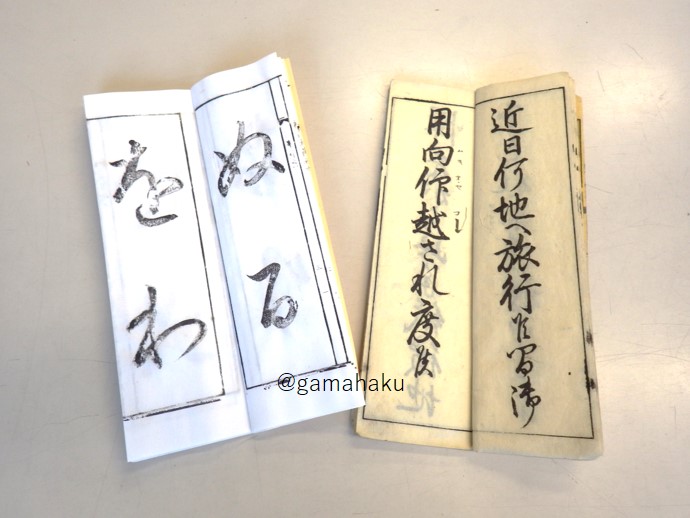 ぬる
をわ
近日何地へ旅行候間御
用向仰越され度候
@gamahaku